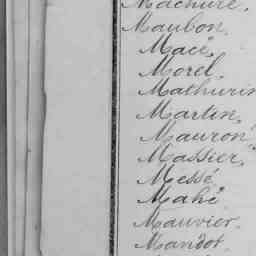 Machure.
Maubon.
Macé.
Morel.
Mathurin
Martin.
Mauron
Massier.
Messé
Mahé
Mauvier.
Mandot.